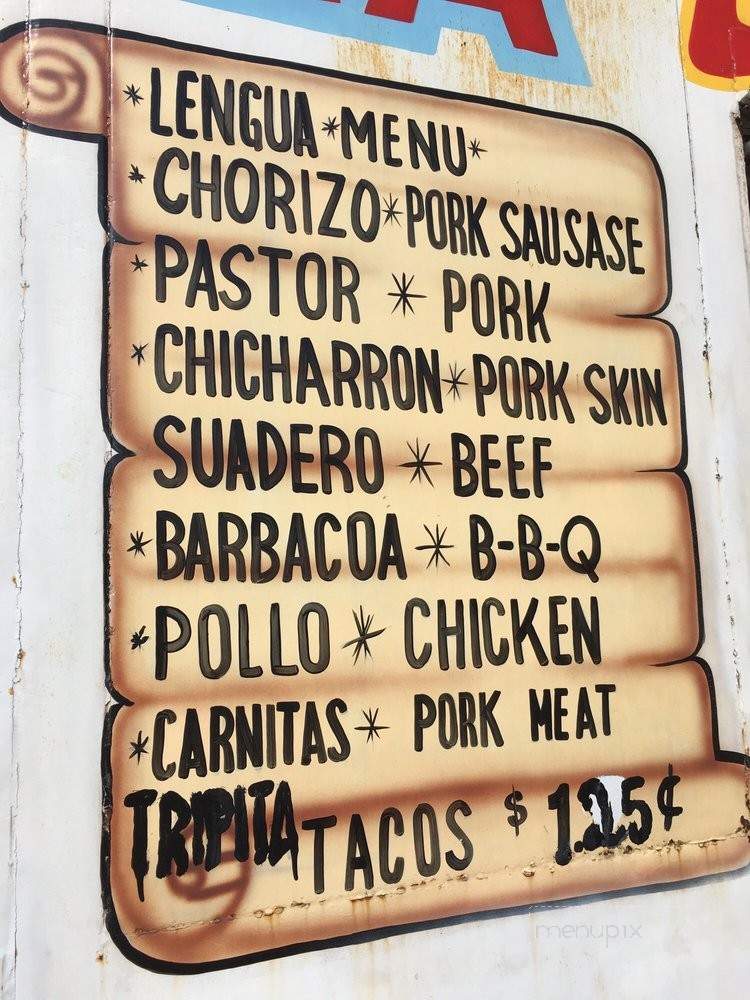 *LENGUA*MENU*
*CHORIZO*PORK SAUSASE
*PASTOR * PORK
*CHICHARRON*PORK SKIN
SUADERO * BEEF
*BARBACOA * B-B-Q
*POLLO * CHICKEN
*CARNITAS * PORK MEAT
TRIPITA TACOS $ 1.25¢
menupix